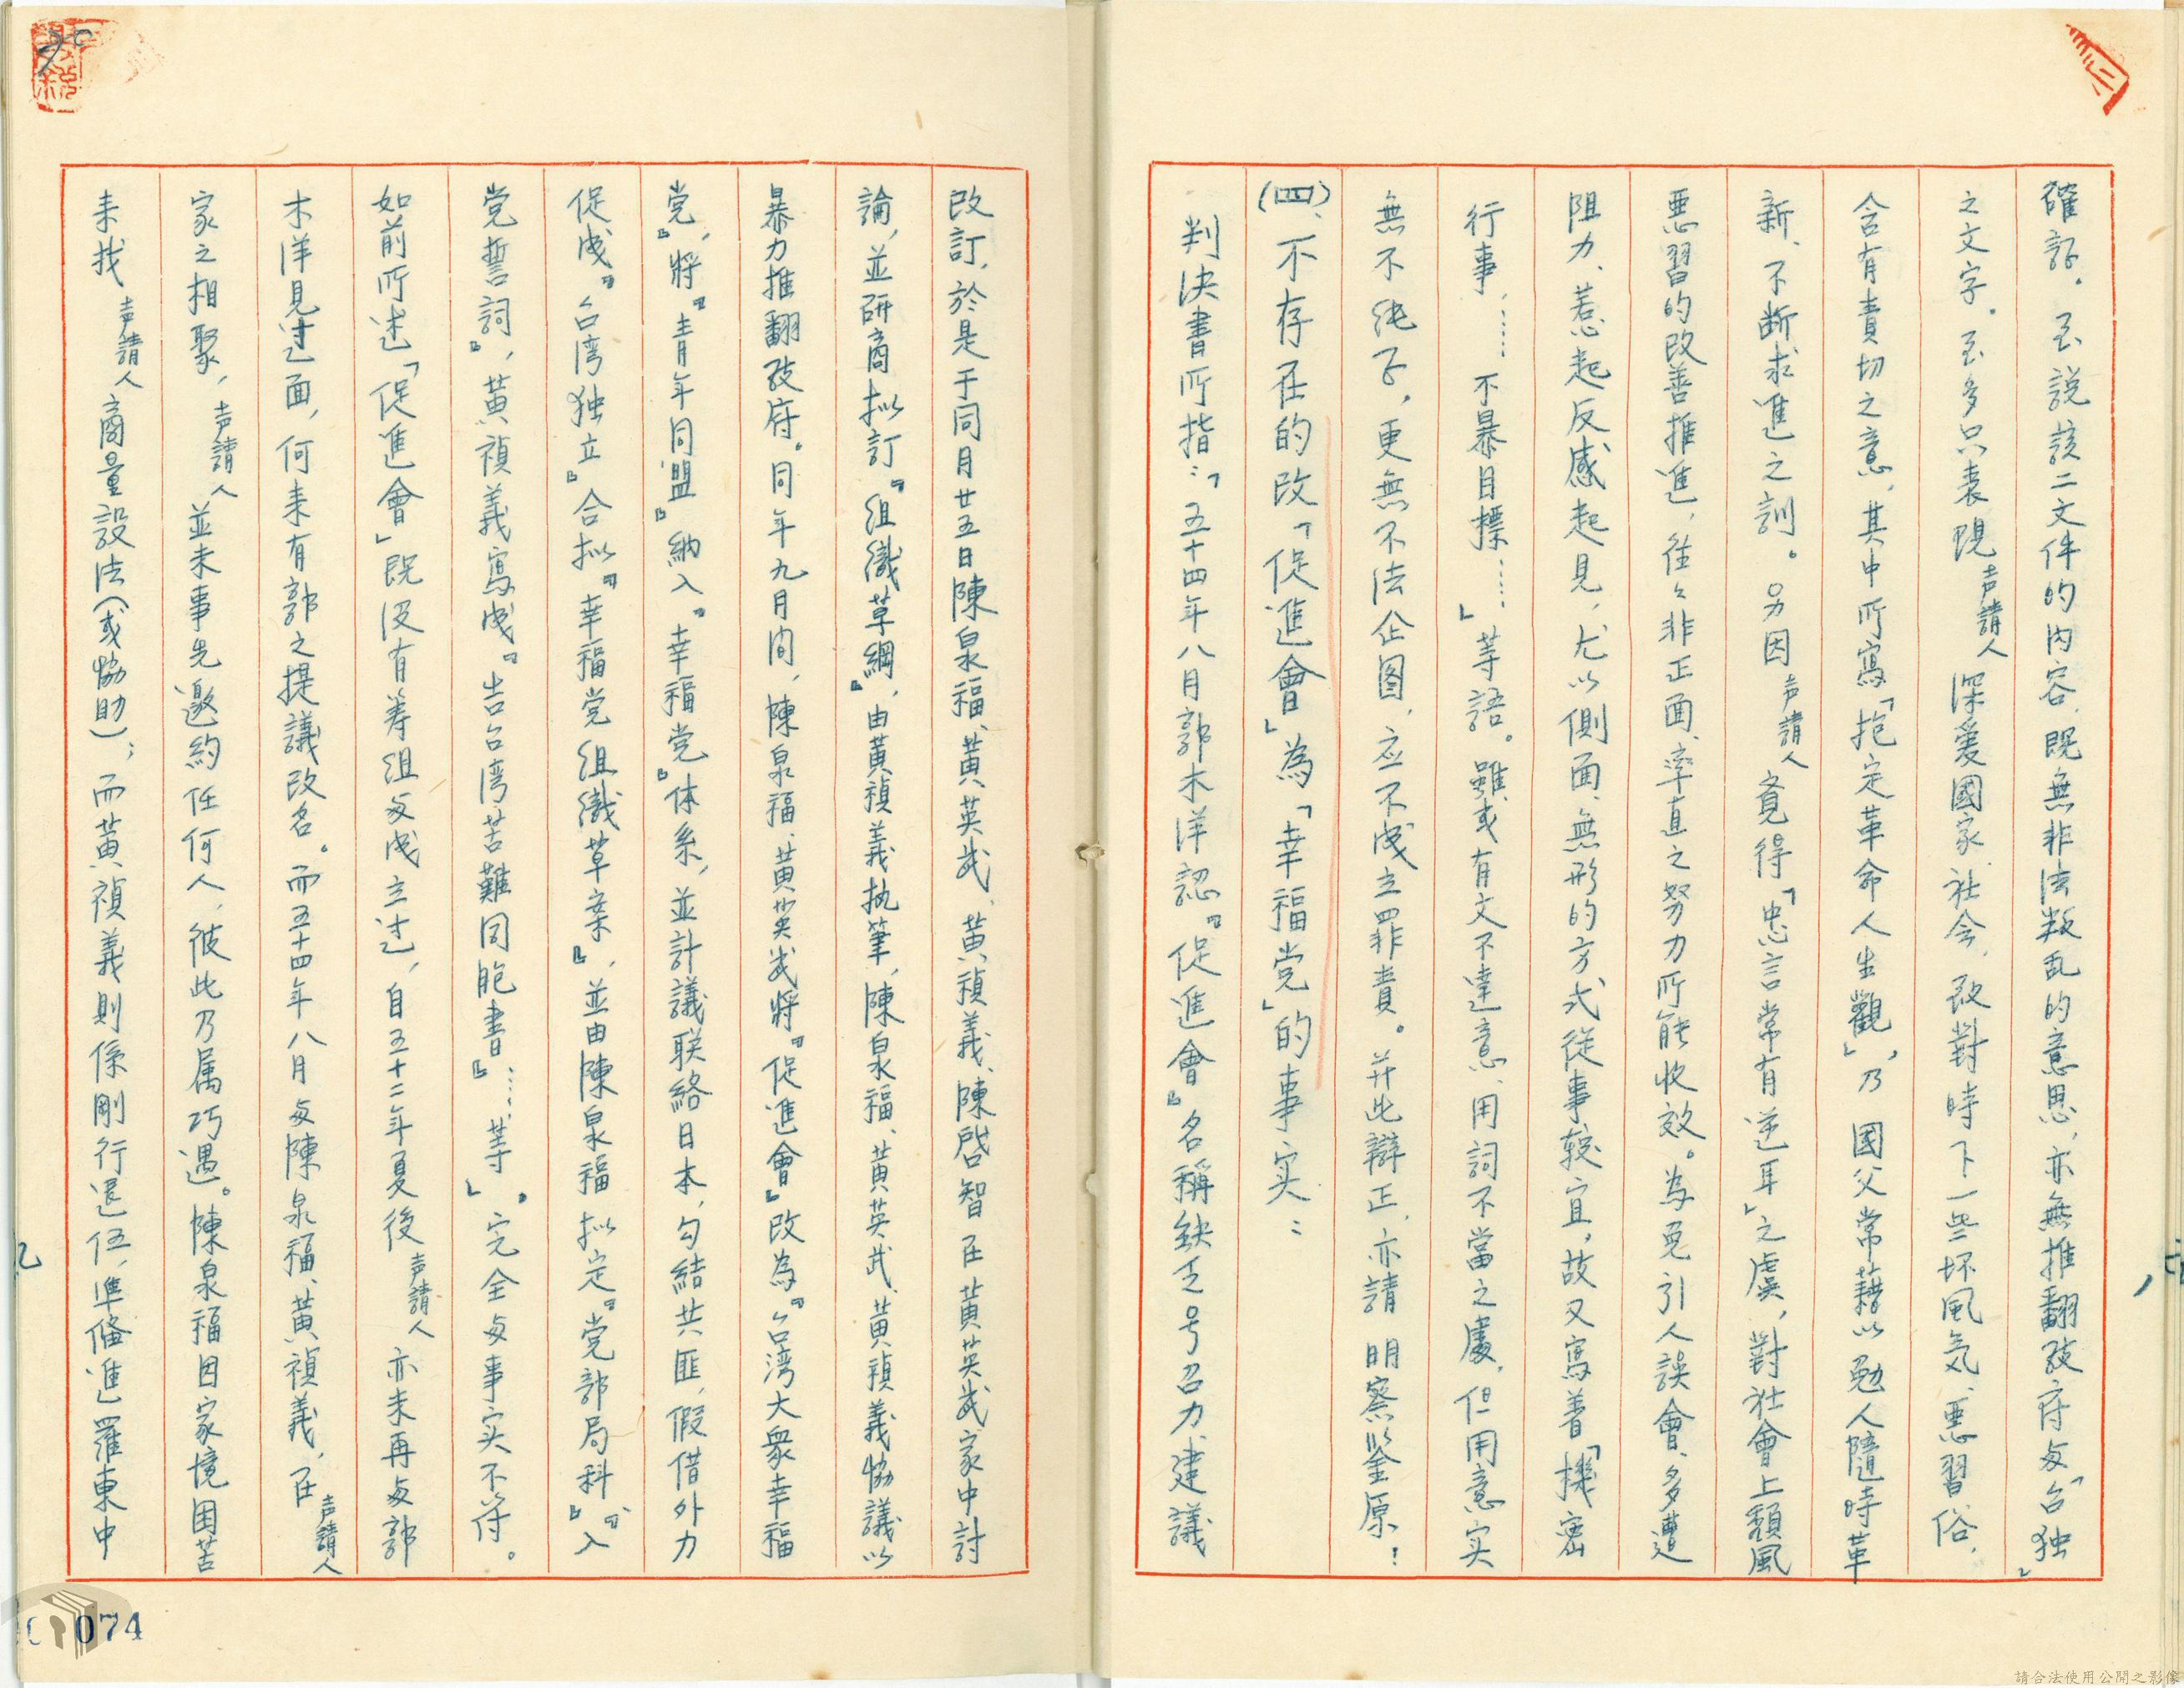 確証。至説該二文件的内容，既無非法叛乱的意思，亦無推翻政府与「台独」
之文字。至多只表現声請人深愛國家、社会，致對時下一些坏風気、悪習俗，
含有責切之意，其中所寫「抱定革命人生觀」，乃 國父常藉以勉人隨時革
新、不断求進之訓。另因声請人覚得「忠言常有逆耳」之虞，對社會上頽風
悪習的改善推進，往々非正面、率直之努力所能收效。為免引人誤會、多遭
阻力、惹起反感起見，尤以側面、無形的方式從事較宜，故又寫着「機密
行事，……不暴目標……」等語。雖或有文不達意、用詞不當之處，但用意实
無不純了，更無不法企图，应不成立罪責。并此辯正，亦請 明察鉴原！
（四）、不存在的改「促進會」為「幸福党」的事实：
判決書所指：「五十四年八月郭木洋認『促進會』名稱缺乏号召力，建議
改訂，於是于同月廿五日陳泉福、黄英武、黄禎義、陳啓智在黄英武家中討
論，並研商拟訂『組織草綱』，由黄禎義执筆，陳泉福、黄英武、黄禎義協議以
暴力推翻政府。同年九月间，陳泉福、黄英武將『促進會』改為『台湾大衆幸福
党』，將『青年同盟』納入『幸福党』体系，並計議联絡日本，勾結共匪，假借外力
促成『台湾独立』合拟『幸福党組織草案』，並由陳泉福拟定『党部局科』、『入
党誓詞』，黄禎義寫成『告台湾苦難同胞書』……等」。完全与事实不符。
如前所述「促進會」既没有筹组与成立过，自五十二年夏後声請人亦未再与郭
木洋見过面，何来有郭之提議改名。而五十四年八月与陳泉福、黄禎義，在声請人
家之相聚，声請人並未事先邀約任何人，彼此乃属巧遇。陳泉福因家境困苦
来找声請人商量設法（或協助）；而黄禎義則係剛行退伍，準俻進羅東中
074
請合法使用公開之影像